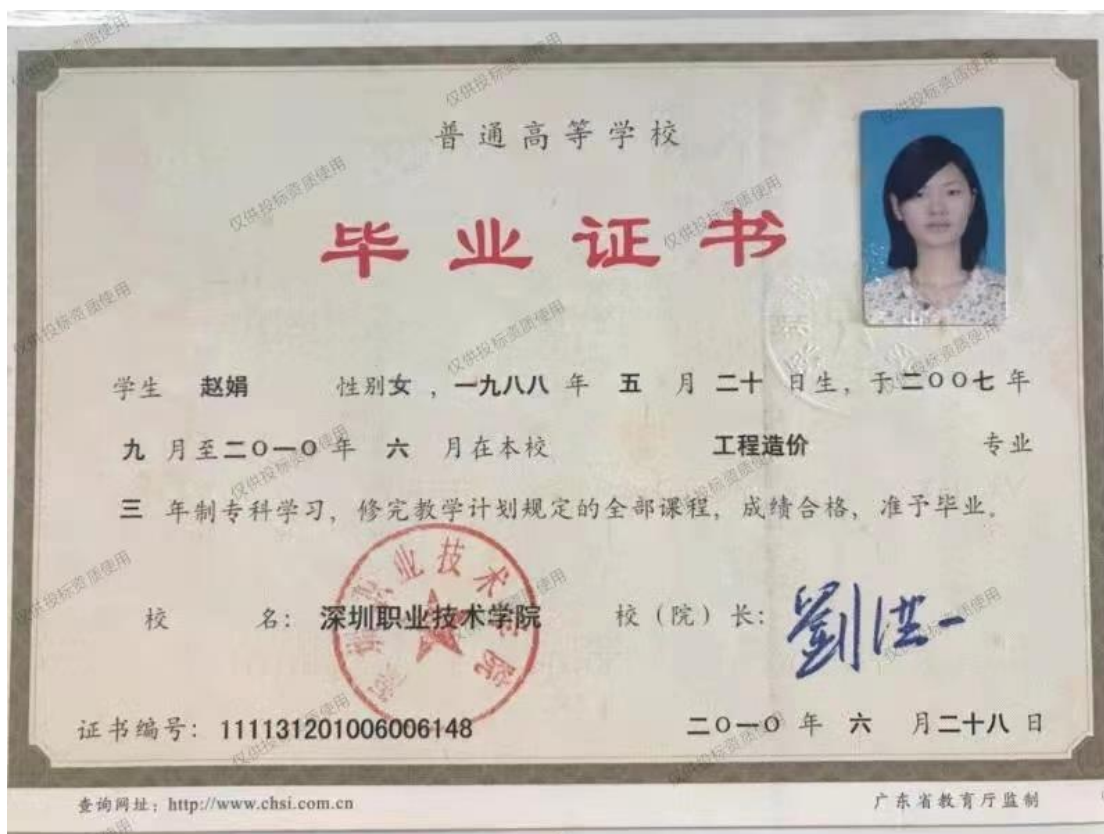 普通高等学校
毕业证书
学生 赵娟 性别女，一九八八 年 五 月 二十 日生，于二〇〇七年
九 月至二〇一〇年 六 月在本校 工程造价 专业
三 年制专科学习，修完教学计划规定的全部课程，成绩合格，准予毕业。
校 名：深圳职业技术学院 校（院）长：劉洪一
证书编号：111131201006006148 二〇一〇 年 六 月二十八 日
查询网址：http://www.chsi.com.cn 广东省教育厅监制
仅供投标资质使用